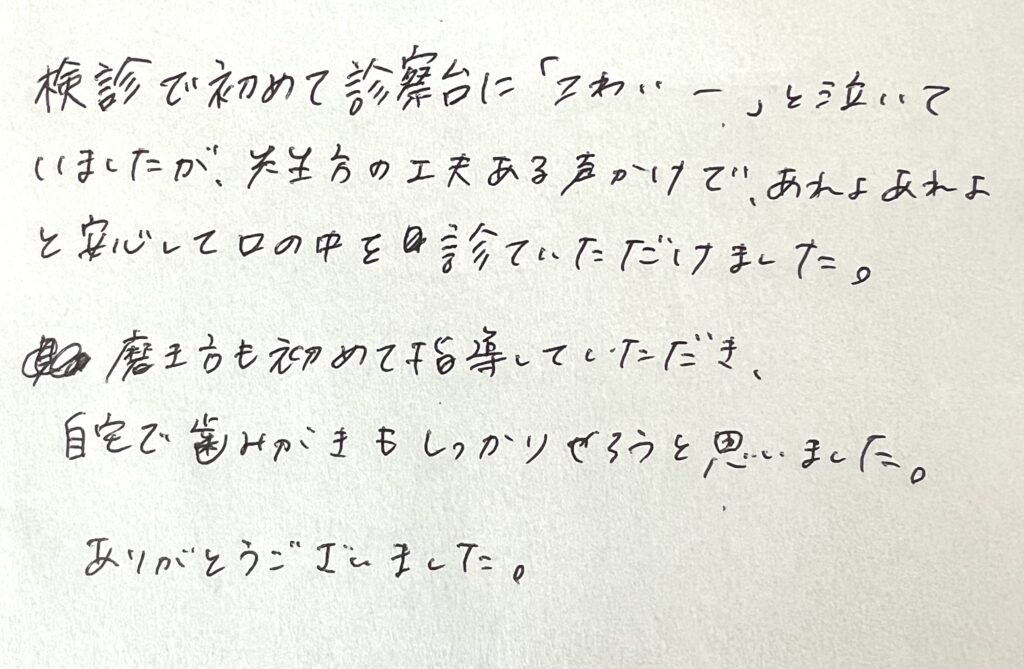 検診で初めて診察台に「こわいー」と泣いて
いましたが、先生方の工夫ある声かけで、あれよあれよ
と安心して口の中を診ていただけました。
磨き方も初めて指導していただき、
自宅で歯みがきもしっかりやろうと思いました。
ありがとうございました。